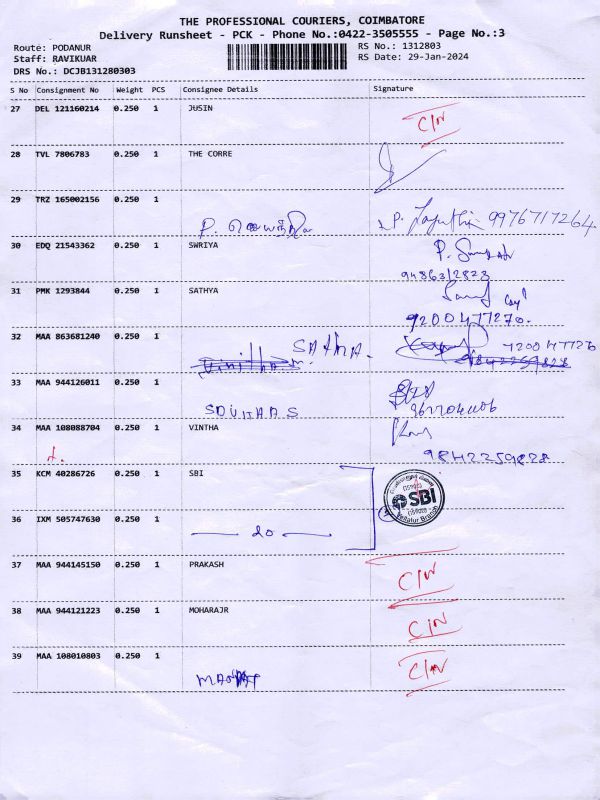 THE PROFESSIONAL COURIERS, COIMBATORE
Delivery Runsheet - PCK - Phone No.:0422-3505555 - Page No.:3
Route: PODANUR RS No.: 1312803
Staff: RAVIKUAR RS Date: 29-Jan-2024
DRS No.: DCJB131280303
S No Consignment No Weight PCS Consignee Details Signature
27 DEL 121160214 0.250 1 JUSIN
C/N
28 TVL 7806783 0.250 1 THE CORRE
29 TRZ 165002156 0.250 1
P. 9976717264
30 EDQ 21543362 0.250 1 SWRIYA
9486312823
31 PMK 1293844 0.250 1 SATHYA
9200477270
32 MAA 863681240 0.250 1
SATHIA
33 MAA 944126011 0.250 1
34 MAA 108088704 0.250 1 VINTHA
9842259828
35 KCM 40286726 0.250 1 SBI
SBI
36 IXM 505747630 0.250 1
do
37 MAA 944145150 0.250 1 PRAKASH
C/N
38 MAA 944121223 0.250 1 MOHARAJR
C/N
39 MAA 108010803 0.250 1
C/N